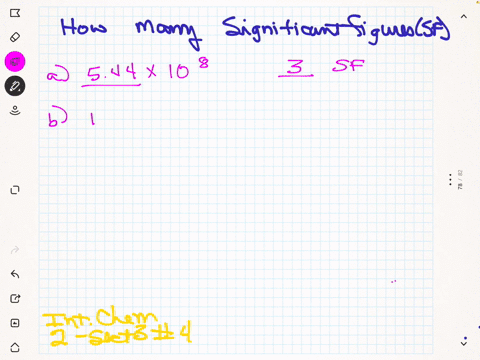 How many Significant figures (SF)
a) 5.44 x 10^8 3 SF
b) 1
Int. Chem
2 - Sect 3 # 4
78 / 82